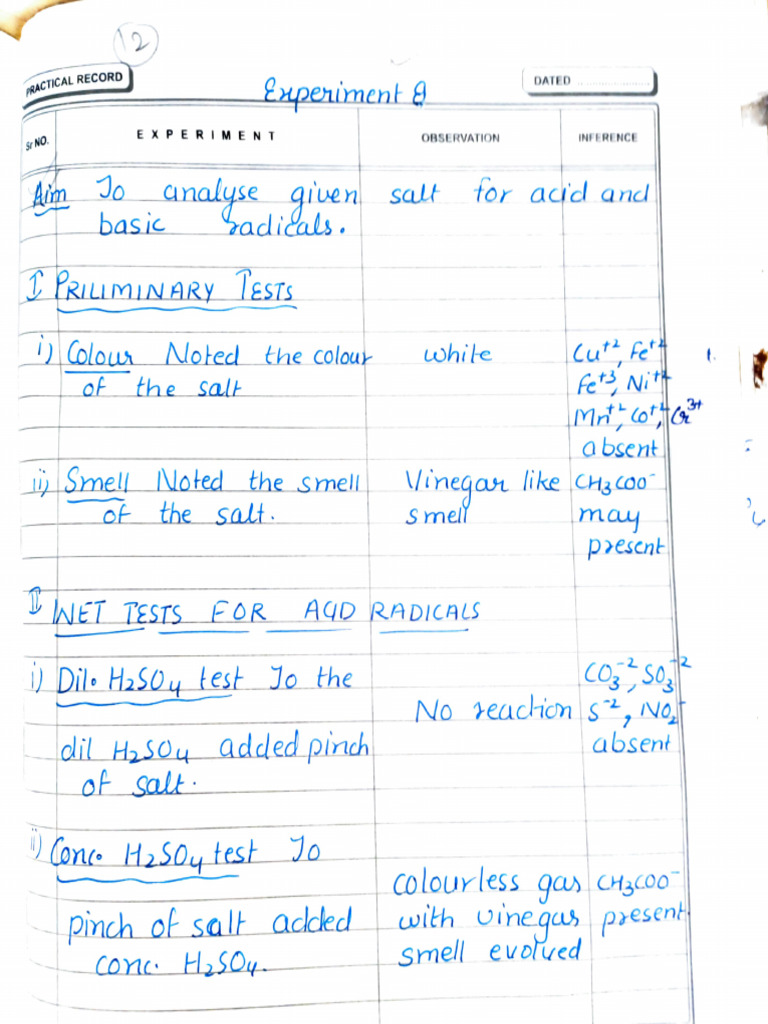 12
PRACTICAL RECORD
Experiment 8
DATED
Sr NO.
EXPERIMENT
OBSERVATION
INFERENCE
Aim To analyse given salt for acid and
basic radicals.
I PRILIMINARY TESTS
i) Colour Noted the colour
of the salt
white
Cu⁺², Fe⁺²
Fe⁺³, Ni⁺²
Mn⁺², Co⁺², Cr³⁺
absent
ii) Smell Noted the smell
of the salt.
Vinegar like
smell
CH₃COO⁻
may
present
II WET TESTS FOR ACID RADICALS
i) Dil. H₂SO₄ test To the
dil H₂SO₄ added pinch
of salt.
No reaction
CO₃⁻², SO₃⁻²
S⁻², NO₂⁻
absent
ii) Conc. H₂SO₄ test To
pinch of salt added
conc. H₂SO₄.
colourless gas
with vinegar
smell evolved
CH₃COO⁻
present